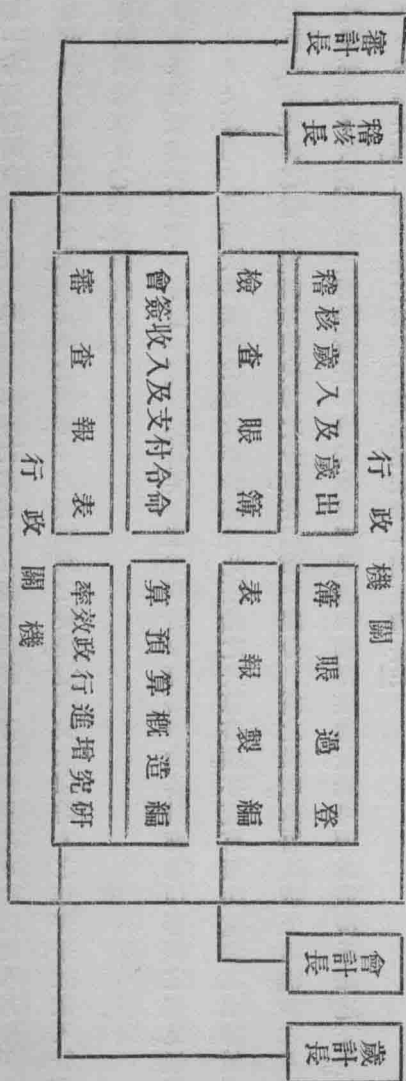 審計長
稽核長
行政機關
稽核歲入及歲出
檢查賬簿
會簽收入及支付命令
審查報表
登過賬簿
編製報表
編造概算預算
研究增進行政效率
行政機關
會計長
歲計長